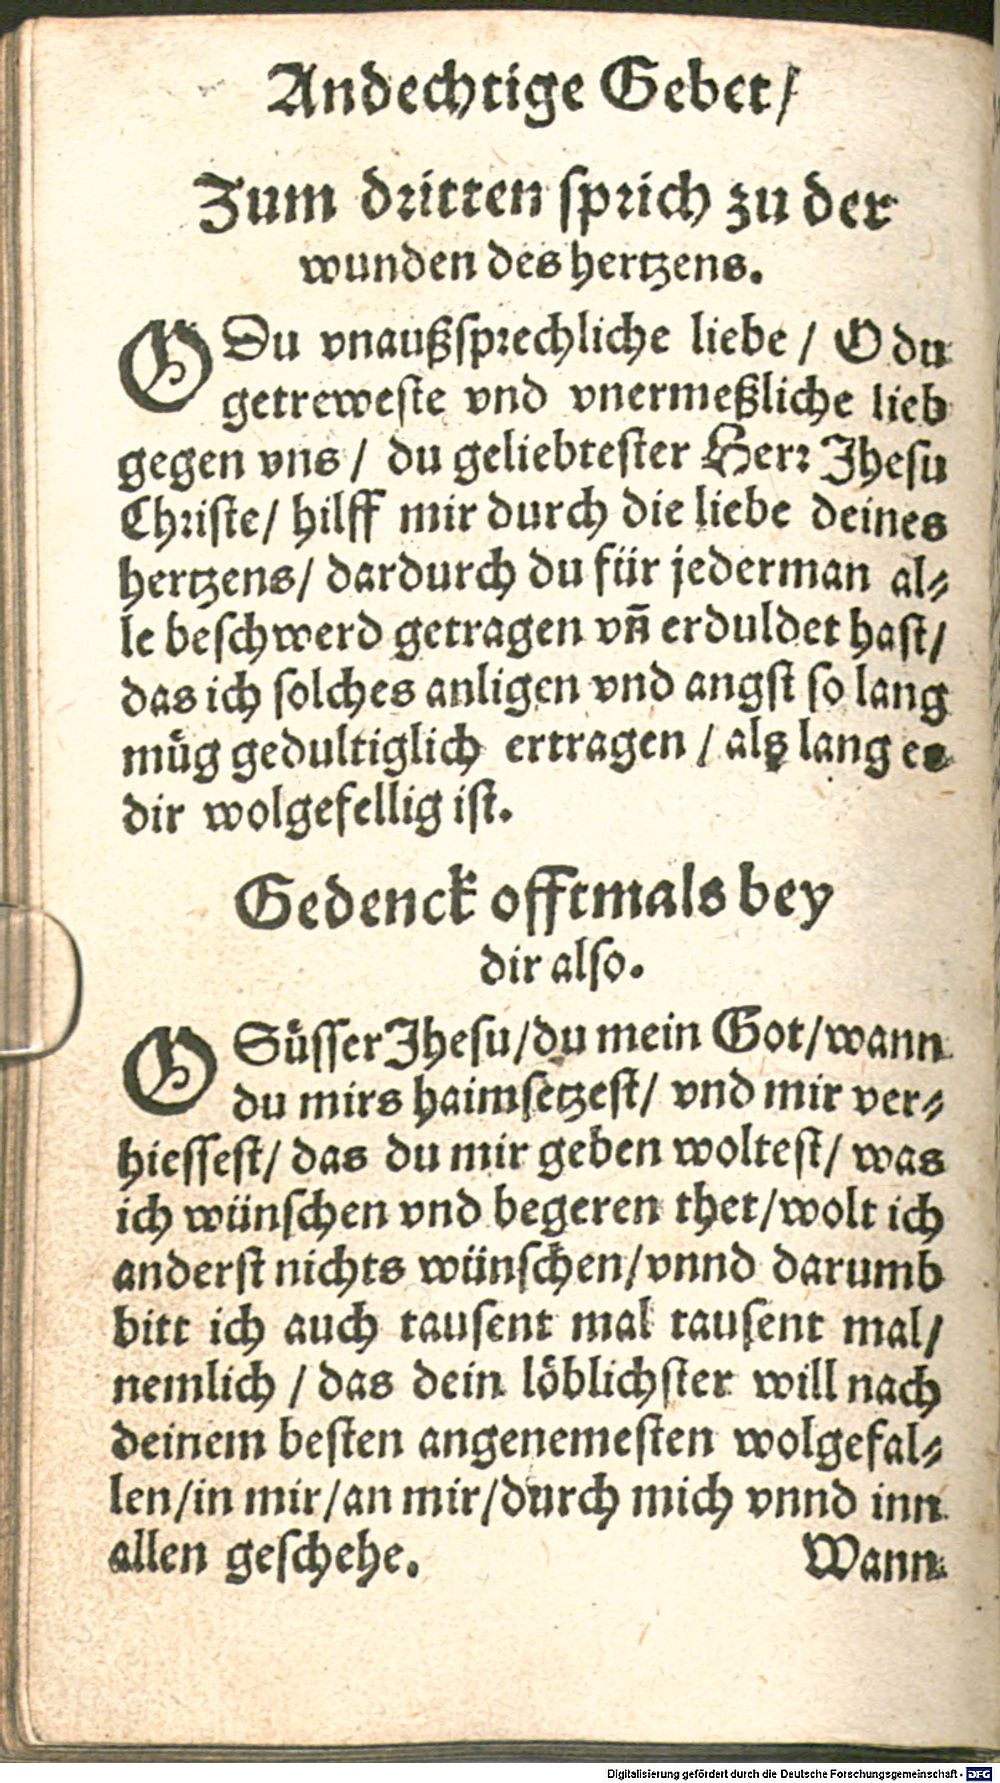 Andechtige Gebet/
Zum dritten sprich zu der
wunden des hertzens.
O Du vnaußsprechliche liebe / O du
getreweste vnd vnermeßliche lieb
gegen vns / du geliebtester Herr Jhesu
Christe/ hilff mir durch die liebe deines
hertzens/ dardurch du für jederman al⸗
le beschwerd getragen vñ erduldet hast/
das ich solches anligen vnd angst so lang
muͤg gedultiglich ertragen / alß lang es
dir wolgefellig ist.
Gedenck offtmals bey
dir also.
O Suͤsser Jhesu/du mein Got/wann
du mirs haimsetzest/ vnd mir ver⸗
hiessest/ das du mir geben woltest/ was
ich wünschen vnd begeren thet/wolt ich
anderst nichts wünschen/vnnd darumb
bitt ich auch tausent mal tausent mal/
nemlich / das dein loͤblichster will nach
deinem besten angenemesten wolgefal⸗
len/in mir/an mir/durch mich vnnd inn
allen geschehe. Wann
Digitalisierung gefördert durch die Deutsche Forschungsgemeinschaft - DFG